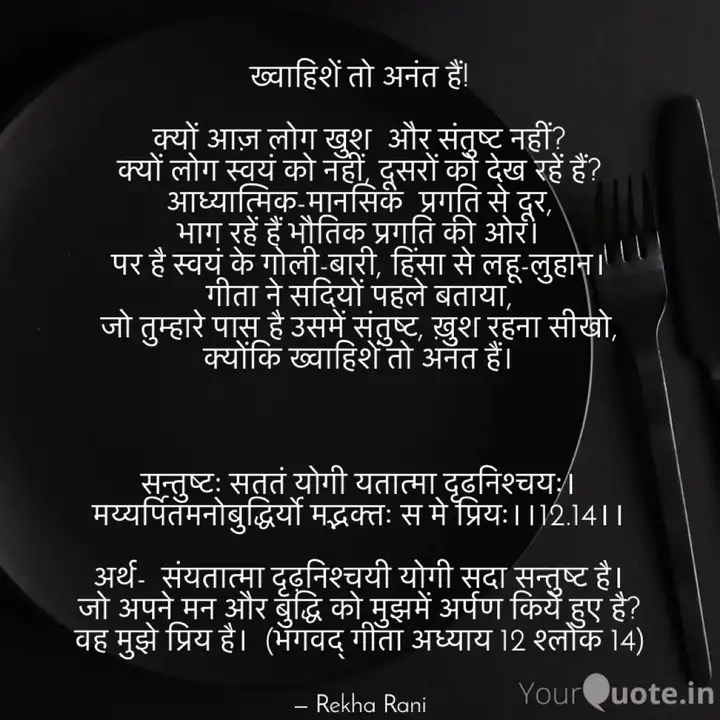 ख्वाहिशें तो अनंत हैं!
क्यों आज़ लोग खुश और संतुष्ट नहीं?
क्यों लोग स्वयं को नहीं, दूसरों को देख रहें हैं?
आध्यात्मिक-मानसिक प्रगति से दूर,
भाग रहें हैं भौतिक प्रगति की ओर।
पर है स्वयं के गोली-बारी, हिंसा से लहू-लुहान।
गीता ने सदियों पहले बताया,
जो तुम्हारे पास है उसमें संतुष्ट, ख़ुश रहना सीखो,
क्योंकि ख्वाहिशें तो अनंत हैं।
सन्तुष्टः सततं योगी यतात्मा दृढनिश्चयः।
मय्यर्पितमनोबुद्धिर्यो मद्भक्तः स मे प्रियः।।12.14।।
अर्थ- संयतात्मा दृढ़निश्चयी योगी सदा सन्तुष्ट है।
जो अपने मन और बुद्धि को मुझमें अर्पण किये हुए है?
वह मुझे प्रिय है। (भगवद् गीता अध्याय 12 श्लोक 14)
– Rekha Rani
YourQuote.in